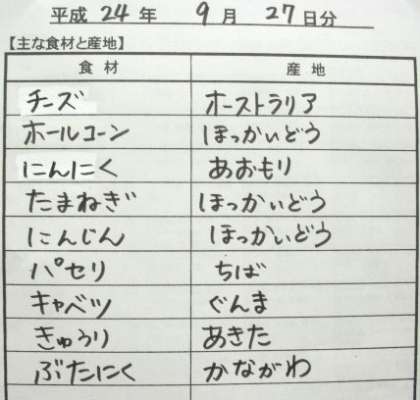 平成 24 年 9 月 27 日分
【主な食材と産地】
食材 産地
チーズ オーストラリア
ホールコーン ほっかいどう
にんにく あおもり
たまねぎ ほっかいどう
にんじん ほっかいどう
パセリ ちば
キャベツ ぐんま
きゅうり あきた
ぶたにく かながわ